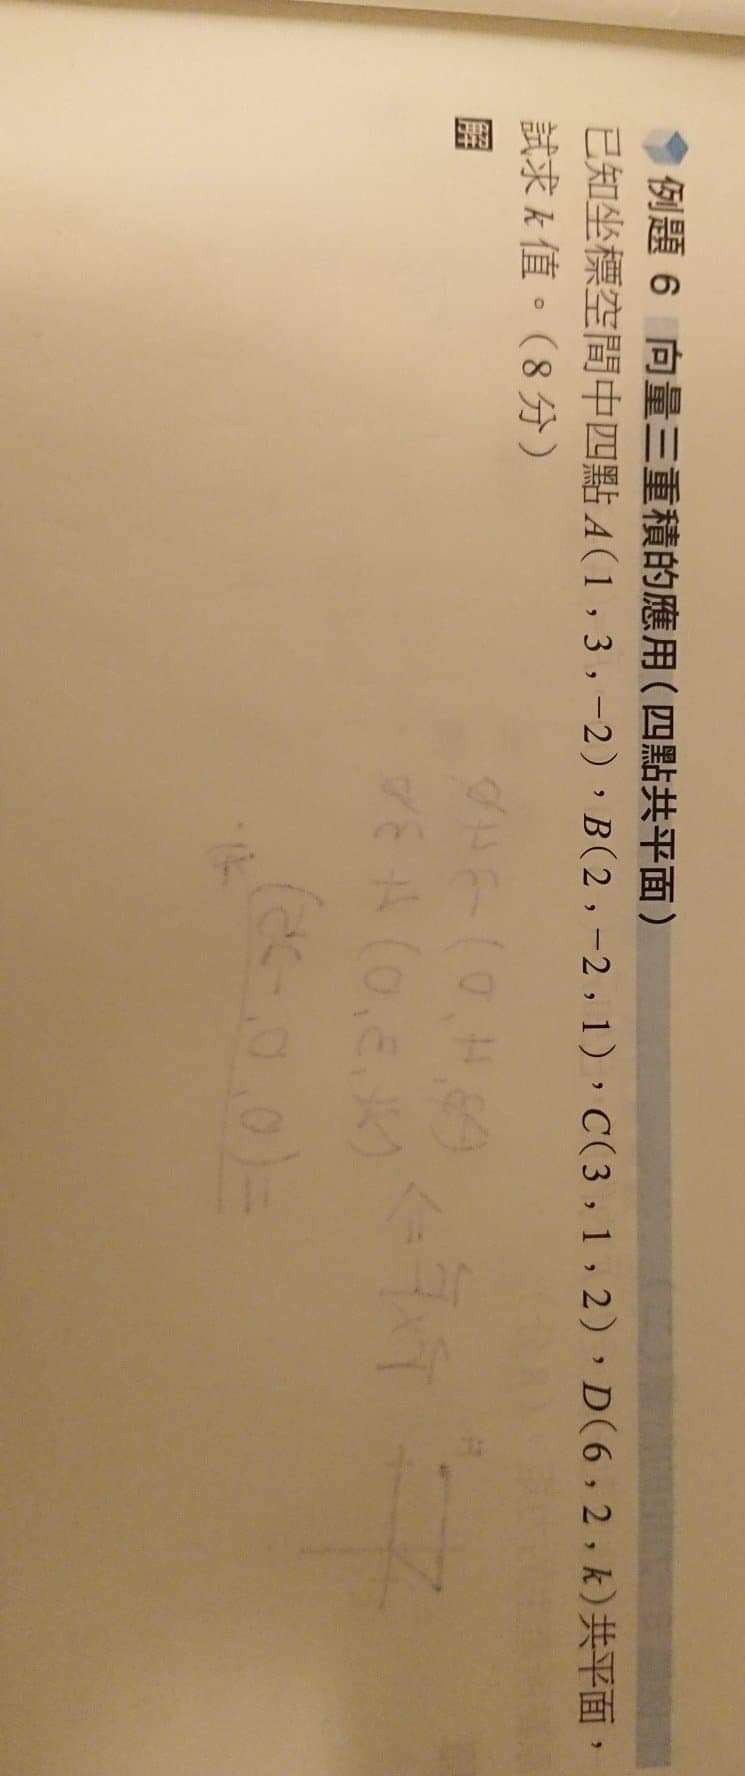 例題 6 向量三重積的應用(四點共平面)
已知坐標空間中四點A(1,3,-2),B(2,-2,1),C(3,1,2),D(6,2,k)共平面,
試求k值。(8分)
解